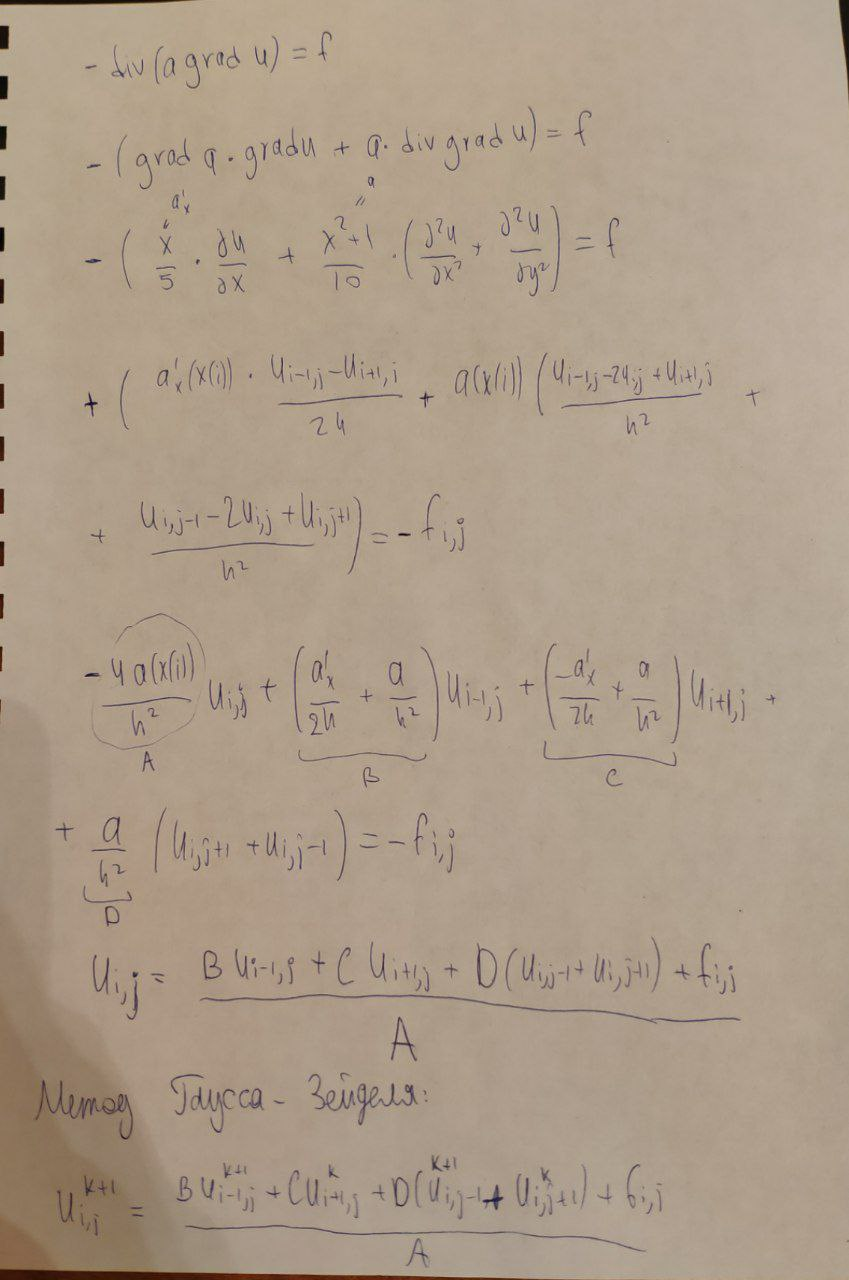 - div(a grad u) = f
- (grad a · grad u + a · div grad u) = f
a'ₓ a
- ( x/5 · ∂u/∂x + (x²+1)/10 · (∂²u/∂x² + ∂²u/∂y²) = f
+ ( a'ₓ(x(i)) · (u_{i-1,j} - u_{i+1,j})/2h + a(x(i)) ( (u_{i-1,j} - 2u_{i,j} + u_{i+1,j})/h² +
+ (u_{i,j-1} - 2u_{i,j} + u_{i,j+1})/h² ) = - f_{i,j}
- 4a(x(i))/h² u_{i,j} + (a'ₓ/2h + a/h²) u_{i-1,j} + (-a'ₓ/2h + a/h²) u_{i+1,j} +
A B C
+ a/h² (u_{i,j+1} + u_{i,j-1}) = - f_{i,j}
D
u_{i,j} = (B u_{i-1,j} + C u_{i+1,j} + D(u_{i,j-1} + u_{i,j+1}) + f_{i,j})/A
Метод Гаусса - Зейделя:
u_{i,j}^{k+1} = (B u_{i-1,j}^{k+1} + C u_{i+1,j}^{k} + D(u_{i,j-1}^{k+1} + u_{i,j+1}^{k}) + f_{i,j})/A